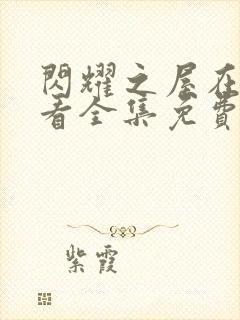 閃耀之屋在
看全集免費
紫霞